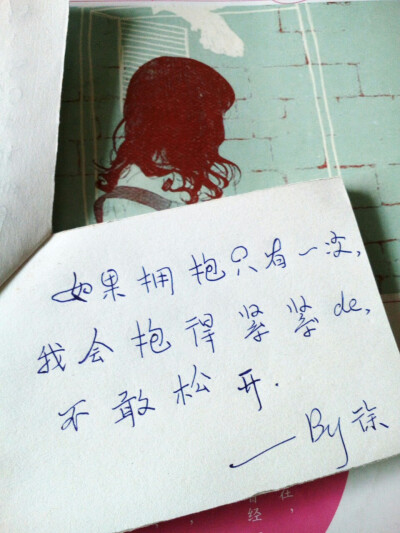 如果拥抱只有一次,
我会抱得紧紧de,
不敢松开.
——By 徐
在,
经